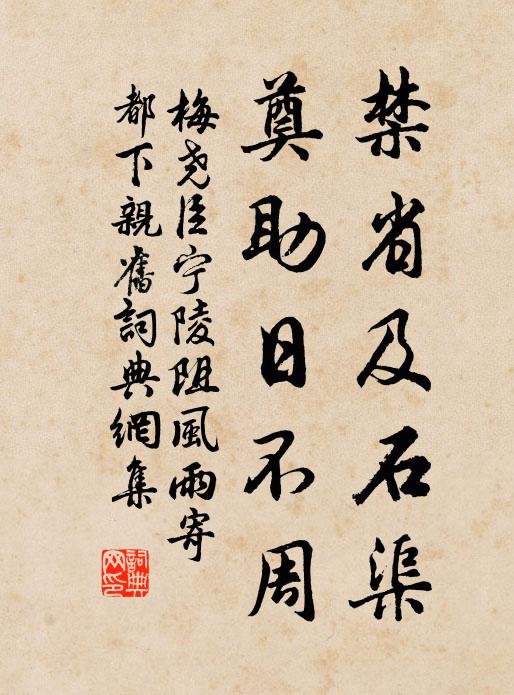 禁省及石渠
奠助日不周
梅尧臣宁陵阻風雨寄
都下親舊詞典網集
詞典网印